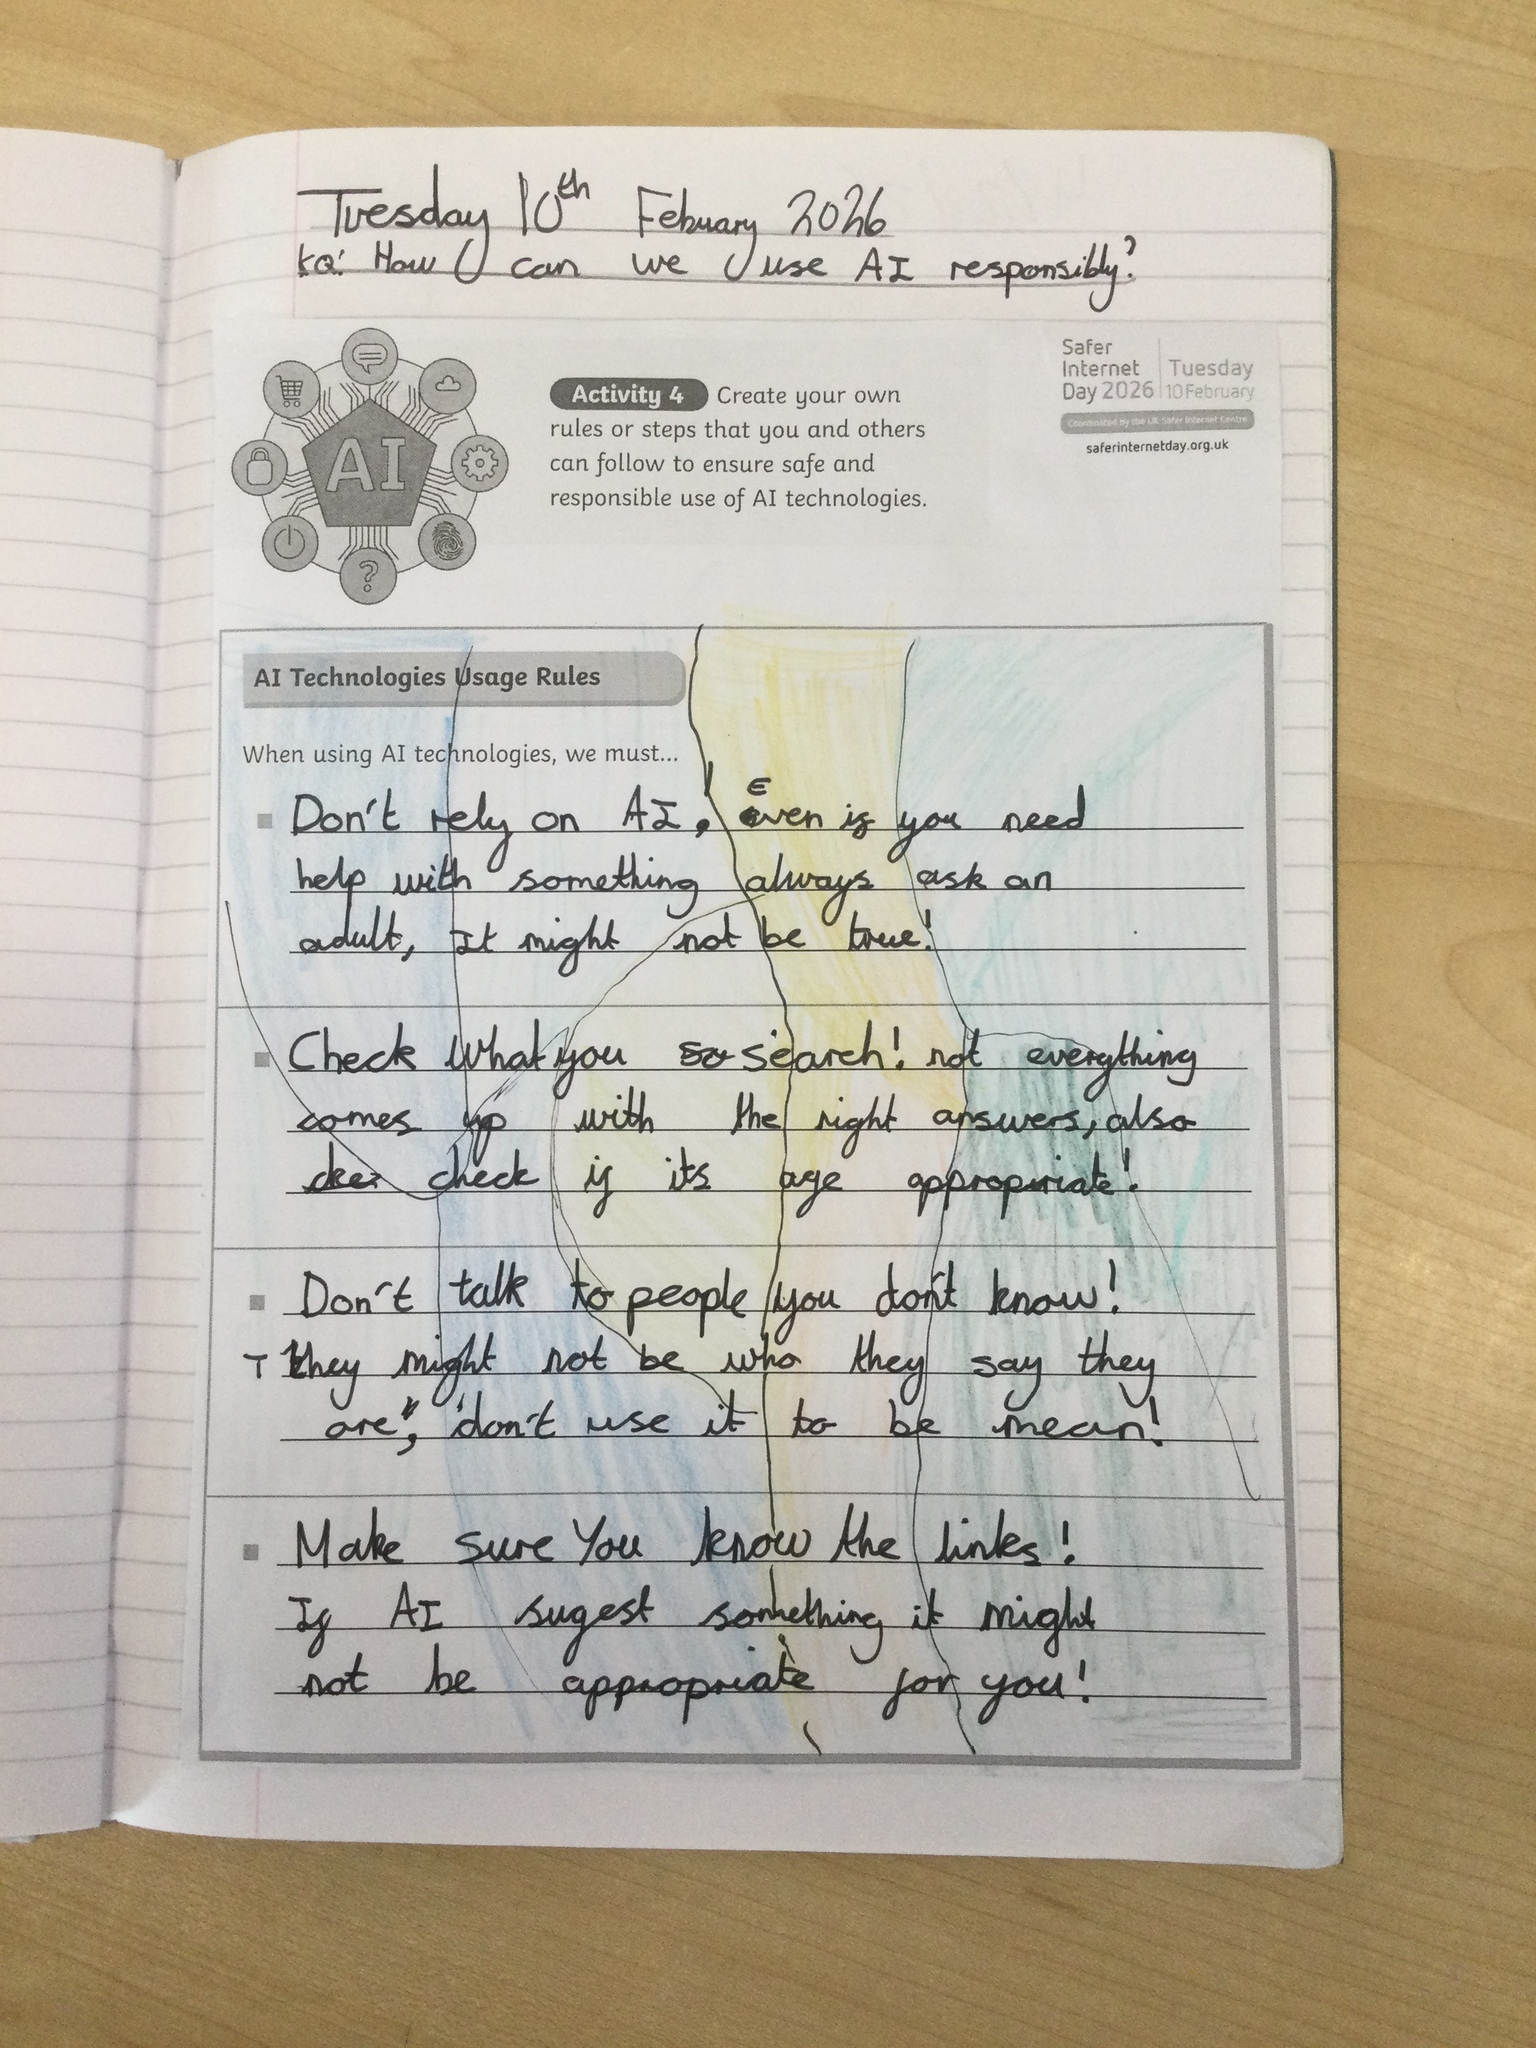 Tuesday 10th Febuary 2026
KQ: How can we use AI responsibly?
AI
Activity 4 Create your own
rules or steps that you and others
can follow to ensure safe and
responsible use of AI technologies.
Safer
Internet
Day 2026
Tuesday
10 February
Coordinated by the UK Safer Internet Centre
saferinternetday.org.uk
AI Technologies Usage Rules
When using AI technologies, we must...
Don't rely on AI! Even if you need
help with something always ask an
adult, It might not be true!
Check What you so search! not everything
comes up with the right answers, also
check if its age appropriate!
Don't talk to people you don't know!
They might not be who they say they
are", don't use it to be mean!
Make sure You know the links!
If AI sugest something it might
not be appropriate for you!